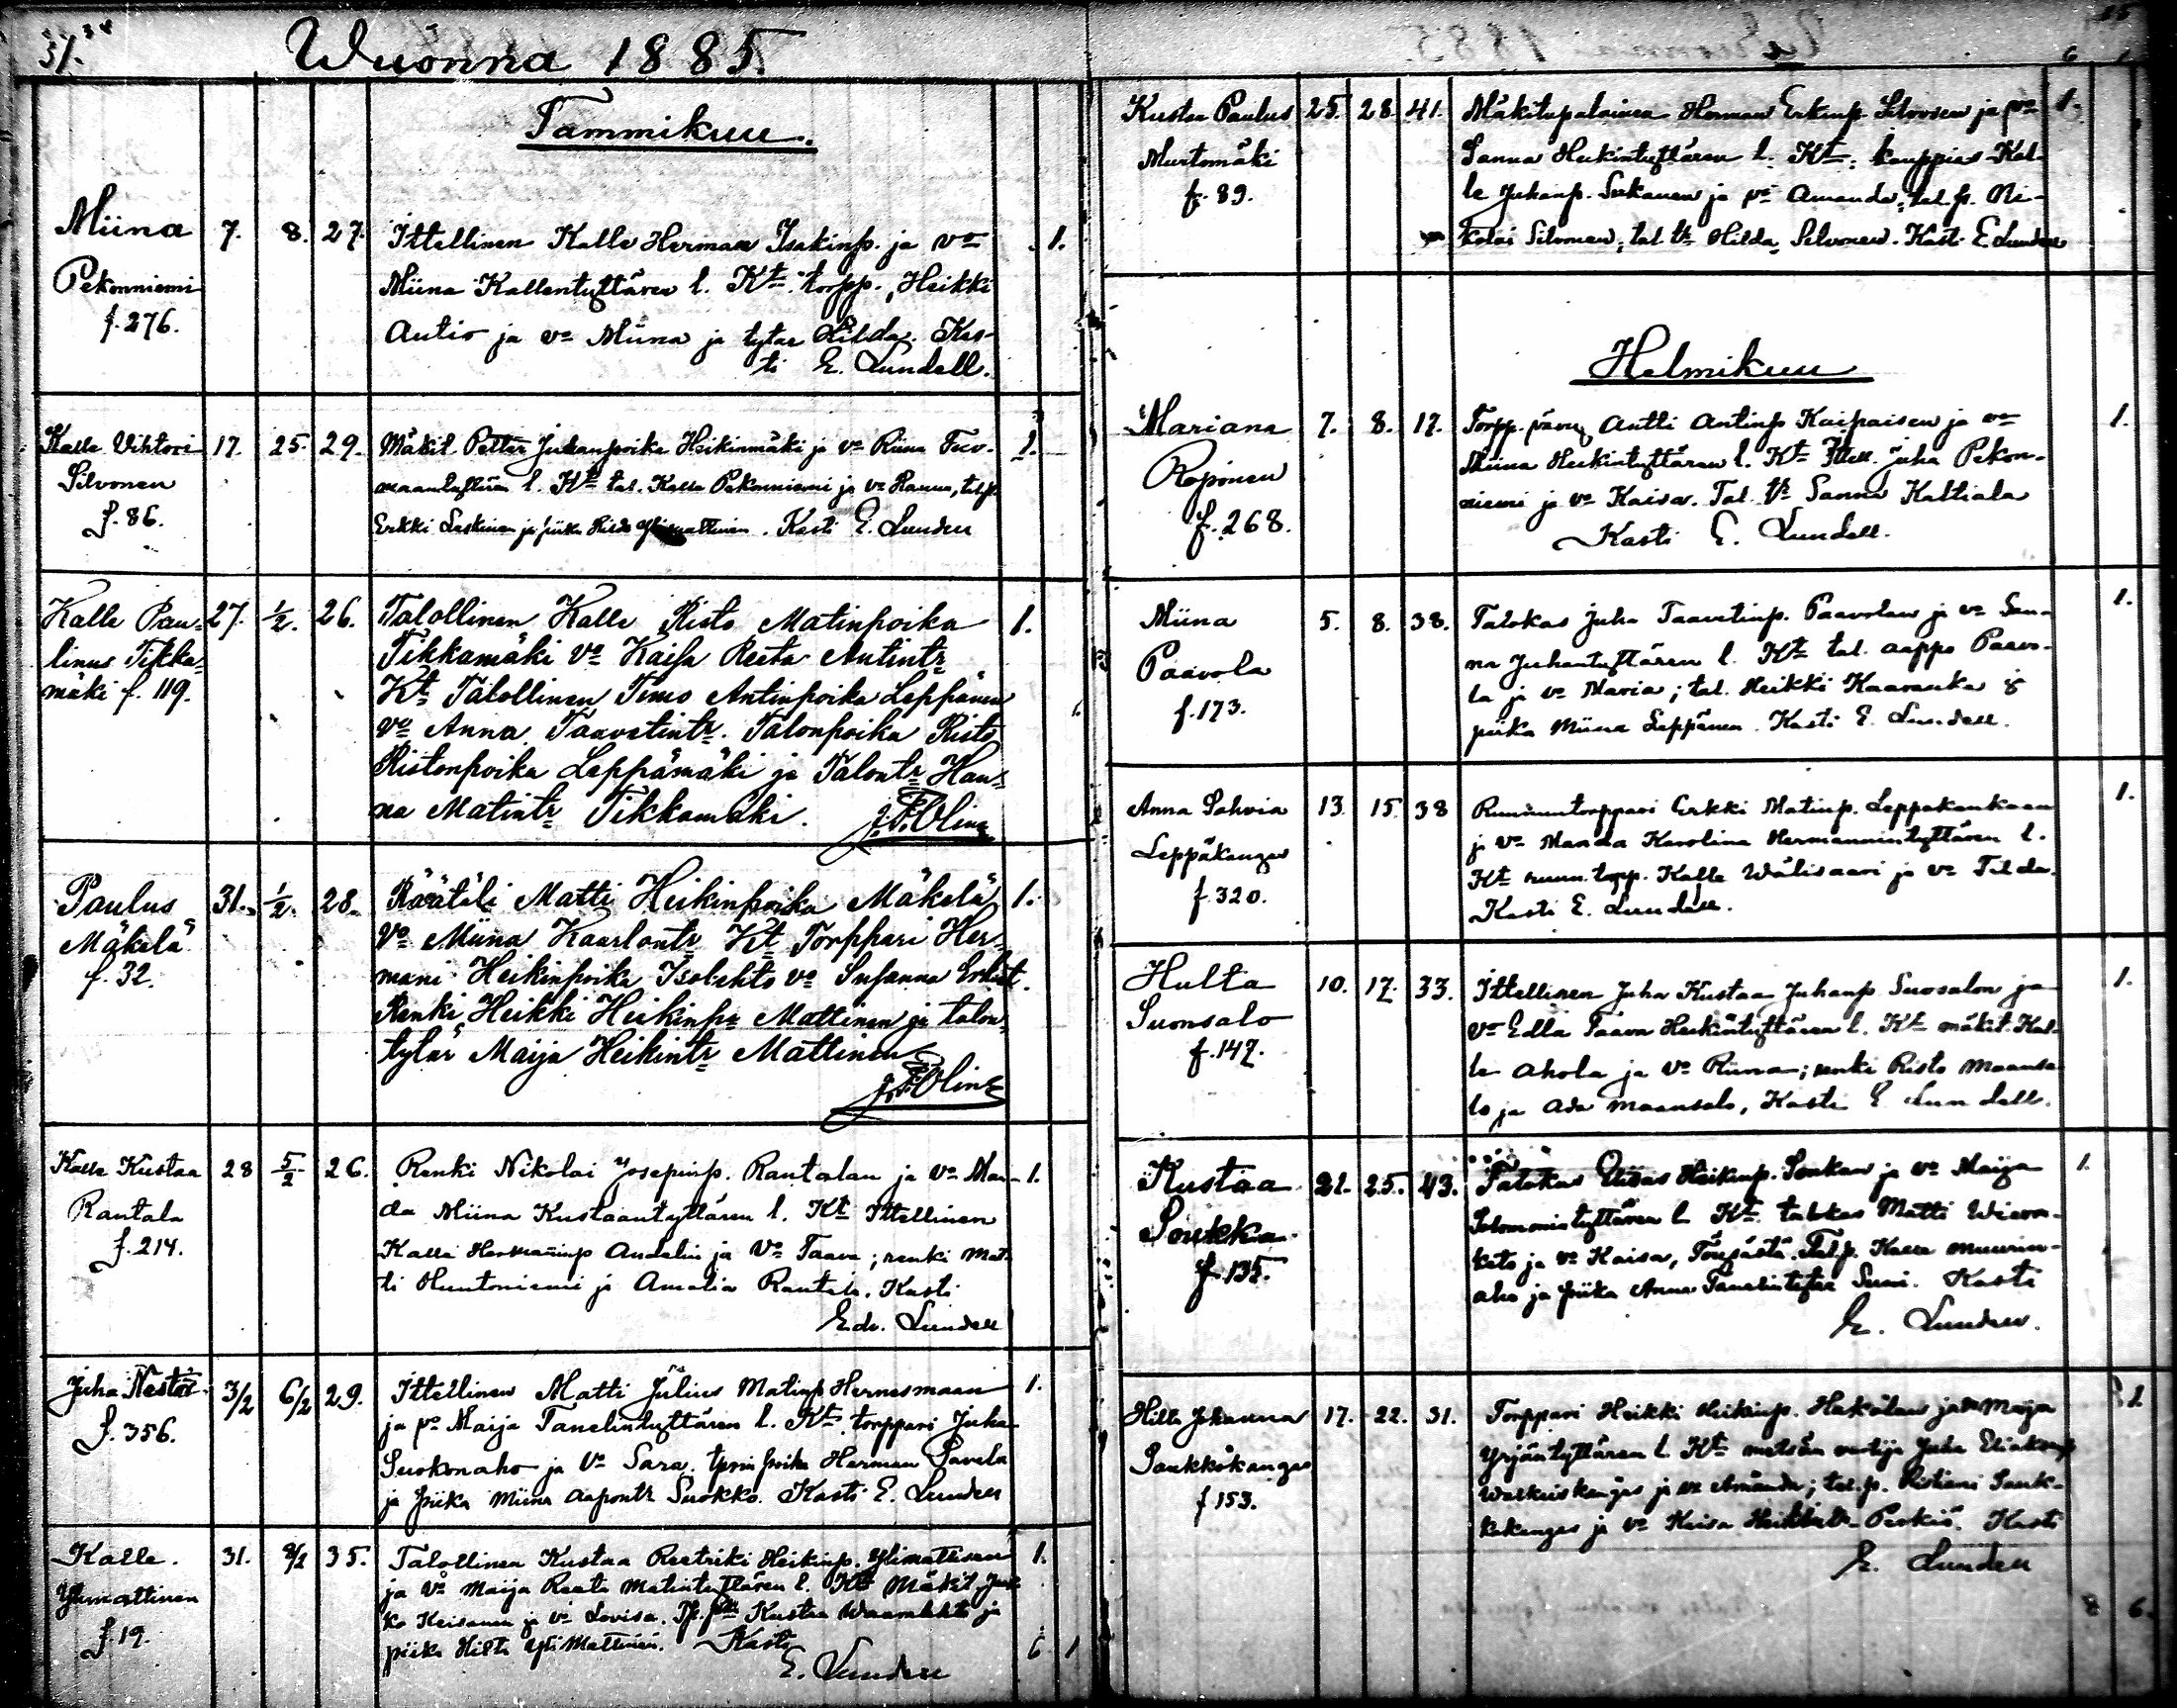 51.
Wuonna 1885.
Tammikuu.
Miina
Pekonniemi
f. 276.
7. 8. 27.
Ittellinen Kalle Herman Isakinp. ja vo
Miina Kallentyttären l. Kt. torpp. Heikki
Autio ja vo Miina ja tytar Hilda. Kas-
ti E. Lundell.
1.
Kalle Vihtori
Silvonen
f. 86.
17. 25. 29.
Mäkit. Petter Juhanpoika Heikinmäki ja vo Riina
l. Kt tal. Kalle Pekonniemi ja vo Hanna, tal.p.
Erkki Laskinen ja piika Hilda Ylimattinen. Kasti E. Lundell
1.
Kalle Pau-
linus Tikka-
mäki f. 119.
27. 1/2. 26.
Talollinen Kalle Risto Matinpoika
Tikkamäki vo Kaisa Reeta Antintr
Kt Talollinen Timo Antinpoika Leppänen
vo Anna Taavetintr. Talonpoika Risto
Ristonpoika Leppämäki ja Talontr Han-
na Matintr Tikkamäki.
1.
Paulus
Mäkelä
f. 32.
31. 1/2. 28.
Räätäli Matti Heikinpoika Mäkelä
Vo Miina Kaarlontr Kt Torppari Her-
mani Heikinpoika Isolehto vo Susanna Erkint.
Renki Heikki Heikinpo Mattinen ja talon-
tytär Maija Heikintr Mattinen
1.
Kalle Kustaa
Rantala
f. 214.
28 5/2 26.
Renki Nikolai Josepinp. Rantalan ja vo Man-
da Miina Kustaantyttären l. Kt Ittellinen
Kalle Hermaninp Andelin ja Vo Taava; renki Mat-
ti Huntoniemi ja Amalia Rantala. Kasti
Edv. Lundell
1.
Juha Nestor
f. 356.
3/2 6/2 29.
Ittellinen Matti Julius Matinp Hernesmaan
ja vo Maija Tanelintyttären l. Kt. torppari Juha
Suokonaho ja Vo Sara. poika Herman Pavela
ja piika Miina Aapontr Suokko. Kasti E. Lundell
1.
Kalle.
Ylimattinen
f. 19.
31. 8/2 35.
Talollinen Kustaa Reetriki Heikinp. Ylimattisen
ja Vo Maija Reeta Matintyttären l. Kt Mäkit. Juk-
ko Keisanen ja vo Lovisa. Kustaa ja
piika Hilta Ylimattinen. Kasti
E. Lundell
1.
6 1
6 1
Kustaa Paulus
Murtomäki
f. 89.
25. 28. 41.
Mäkitupalainen Herman Erkinp. Silvosen ja vo
Sanna Heikintyttären l. Kt. kauppias Kal-
le Juhanp. ja vo Amanda; tal. p. Ni-
kolai Silvonen, tal. tr Hilda Silvonen. Kasti E. Lundell
1.
Helmikuu
Mariana
Roponen
f. 268.
7. 8. 17.
Torpp. Antti Antinp Kaipaisen ja vo
Miina Heikintyttären l. Kt Ittell. Juha Pekon-
niemi ja vo Kaisa. Tal. tr Sanna Kaltiala
Kasti E. Lundell.
1.
Miina
Paavola
f. 173.
5. 8. 38.
Talokas Juha Taavetinp. Paavolan ja vo San-
na Juhantyttären l. Kt tal. Aappo Paavo-
la ja vo Maria; tal. Heikki Kaavanka
piika Miina Leppänen. Kasti E. Lundell.
1.
Anna Sahvia
Leppäkangas
f. 320.
13. 15 38
Ruununtorppari Erkki Matinp. Leppäkankaan
ja vo Manda Karolina Hermannintyttären l.
Kt ruun. torpp. Kalle Wälisaari ja vo Tilda.
Kasti E. Lundell.
1.
Hulta
Suonsalo
f. 147.
10. 17. 33.
Ittellinen Juha Kustaa Juhanp Suosalon ja
vo Edla Paava Heikintyttären l. Kt mäkit. Kal-
le Ahola ja vo Riina; renki Risto Maansa
lo ja Ada Maansalo, Kasti E Lundell.
1.
Kustaa
Soukka
f. 135.
21. 25. 43.
Talokas Elias Heikinp. Soukan ja vo Maija
Salomonintyttären l. Kt. talokas Matti
ja vo Kaisa, Töysästä. Tal.p. Kalle Muurin-
aho ja piika Anna Suni. Kasti
E. Lundell.
1.
Hilta Johanna
Paukkokangas
f 153.
17. 22. 31.
Torppari Heikki Heikinp. Hakolan ja vo Maija
Yrjäntyttären l. Kt. metsän vartija Juha
ja vo Amanda; tal.p. Ristiani Pauk-
kokangas ja vo Kaisa Kasti
E. Lundell
1
8 6.